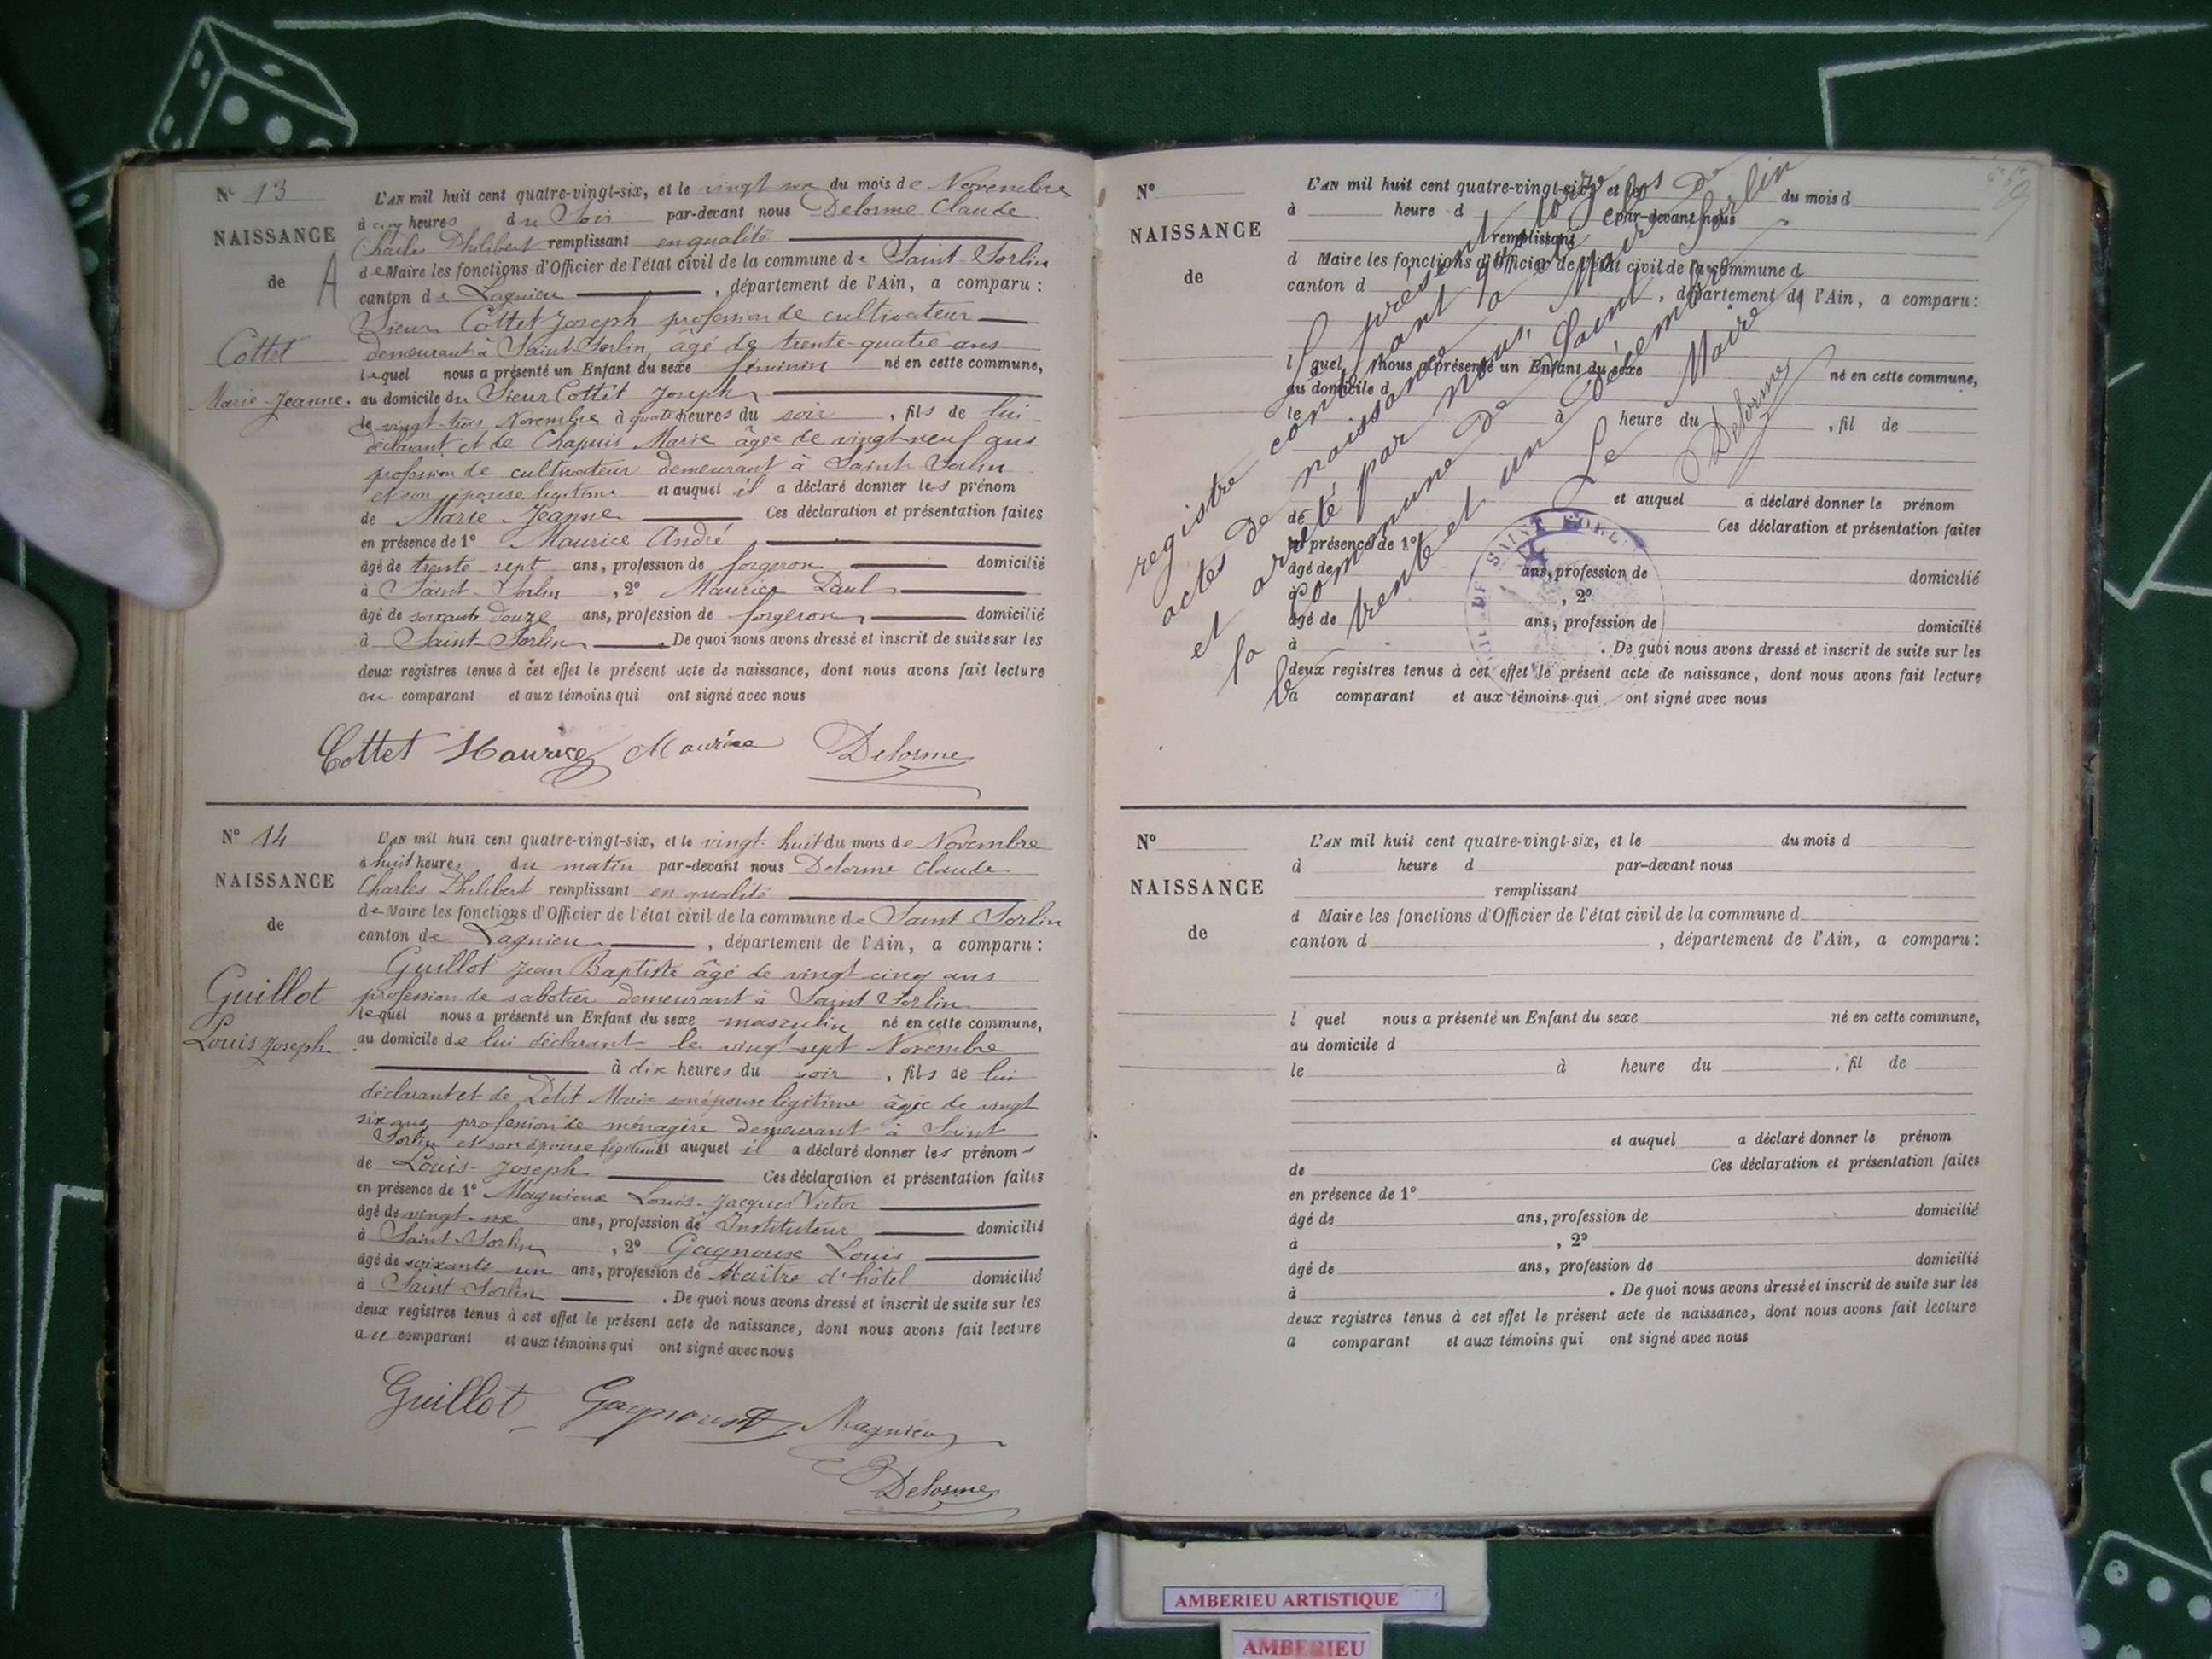 N° 13
NAISSANCE
de A
Cottet
Marie-Jeanne.
L'AN mil huit cent quatre-vingt-six, et le vingt six du mois de Novembre
à cinq heures du Soir par-devant nous Delorme Claude
Charles Philibert remplissant en qualité
de Maire les fonctions d'Officier de l'état civil de la commune de Saint-Sorlin
canton de Lagnieu, département de l'Ain, a comparu :
Sieur Cottet Joseph profession de cultivateur
demeurant à Saint Sorlin, âgé de trente-quatre ans
lequel nous a présenté un Enfant du sexe féminin né en cette commune,
au domicile du Sieur Cottet Joseph
le vingt-trois Novembre à quatre heures du soir, fils de lui
déclarant et de Chapuis Marie âgée de vingt-neuf ans
profession de cultivateur demeurant à Saint-Sorlin
et son épouse légitime et auquel il a déclaré donner les prénom
de Marie Jeanne Ces déclaration et présentation faites
en présence de 1° Maurice André
âgé de trente sept ans, profession de forgeron domicilié
à Saint-Sorlin, 2° Maurice Paul
âgé de soixante douze ans, profession de forgeron domicilié
à Saint-Sorlin. De quoi nous avons dressé et inscrit de suite sur les
deux registres tenus à cet effet le présent acte de naissance, dont nous avons fait lecture
au comparant et aux témoins qui ont signé avec nous
Cottet Maurice Maurice Delorme
N° 14
NAISSANCE
de
Guillot
Louis Joseph
L'AN mil huit cent quatre-vingt-six, et le vingt-huit du mois de Novembre
à huit heures du matin par-devant nous Delorme Claude
Charles Philibert remplissant en qualité
de Maire les fonctions d'Officier de l'état civil de la commune de Saint Sorlin
canton de Lagnieu, département de l'Ain, a comparu :
Guillot Jean Baptiste âgé de vingt cinq ans
profession de sabotier demeurant à Saint Sorlin
lequel nous a présenté un Enfant du sexe masculin né en cette commune,
au domicile de lui déclarant le vingt-sept Novembre
à dix heures du soir, fils de lui
déclarant et de Petit Marie son épouse légitime âgée de vingt
six ans profession de ménagère demeurant à Saint
Sorlin et son épouse légitime et auquel il a déclaré donner les prénoms
de Louis-Joseph Ces déclaration et présentation faites
en présence de 1° Magnieux Louis-Jacques Victor
âgé de vingt-six ans, profession de Instituteur domicilié
à Saint-Sorlin, 2° Gagnoux Louis
âgé de soixante-un ans, profession de Maître d'hôtel domicilié
à Saint-Sorlin. De quoi nous avons dressé et inscrit de suite sur les
deux registres tenus à cet effet le présent acte de naissance, dont nous avons fait lecture
au comparant et aux témoins qui ont signé avec nous
Guillot Gagnoux Magnieux
Delorme
N°
NAISSANCE
de
L'AN mil huit cent quatre-vingt-six, et le du mois d
à heure d par-devant nous
remplissant
d Maire les fonctions d'Officier de l'état civil de la commune d
canton d, département de l'Ain, a comparu :
l quel nous a présenté un Enfant du sexe né en cette commune,
au domicile d
le à heure du, fil de
et auquel a déclaré donner le prénom
de Ces déclaration et présentation faites
en présence de 1°
âgé de ans, profession de domicilié
à, 2°
âgé de ans, profession de domicilié
à. De quoi nous avons dressé et inscrit de suite sur les
deux registres tenus à cet effet le présent acte de naissance, dont nous avons fait lecture
a comparant et aux témoins qui ont signé avec nous
Le présent
registre contenant quatorze
actes de naissance a été clos
et arrêté par nous, Maire de
la Commune de Saint Sorlin
le trente et un décembre
Le Maire
Delorme
SAINT SORL
N°
NAISSANCE
de
L'AN mil huit cent quatre-vingt-six, et le du mois d
à heure d par-devant nous
remplissant
d Maire les fonctions d'Officier de l'état civil de la commune d
canton d, département de l'Ain, a comparu :
l quel nous a présenté un Enfant du sexe né en cette commune,
au domicile d
le à heure du, fil de
et auquel a déclaré donner le prénom
de Ces déclaration et présentation faites
en présence de 1°
âgé de ans, profession de domicilié
à, 2°
âgé de ans, profession de domicilié
à. De quoi nous avons dressé et inscrit de suite sur les
deux registres tenus à cet effet le présent acte de naissance, dont nous avons fait lecture
a comparant et aux témoins qui ont signé avec nous
AMBERIEU ARTISTIQUE
AMBERIEU